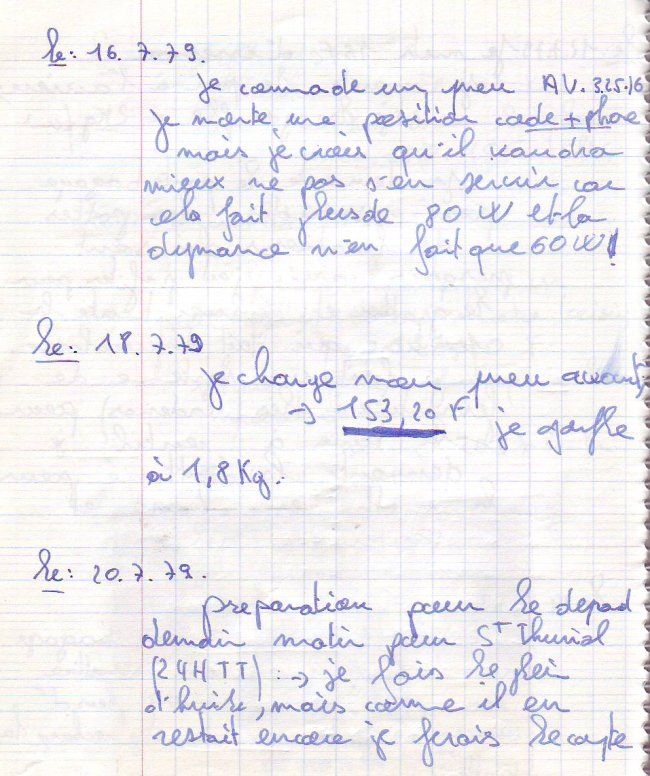 le: 16.7.79.
je commade un pneu AV. 325.16
je monte une position code + phare
mais je crois qu'il vaudra
mieux ne pas s'en servir car
cela fait plus de 80 W et la
dymance n'en fait que 60 W!
le: 18.7.79
je change mon pneu avant,
→ 153,20 F je gonfle
à 1,8 Kg.
le: 20.7.79.
preparation pour le depad
demain matin pour St Thurial
(24HTT) : → je fais le plein
d'huile, mais comme il en
restait encore je ferais le compte